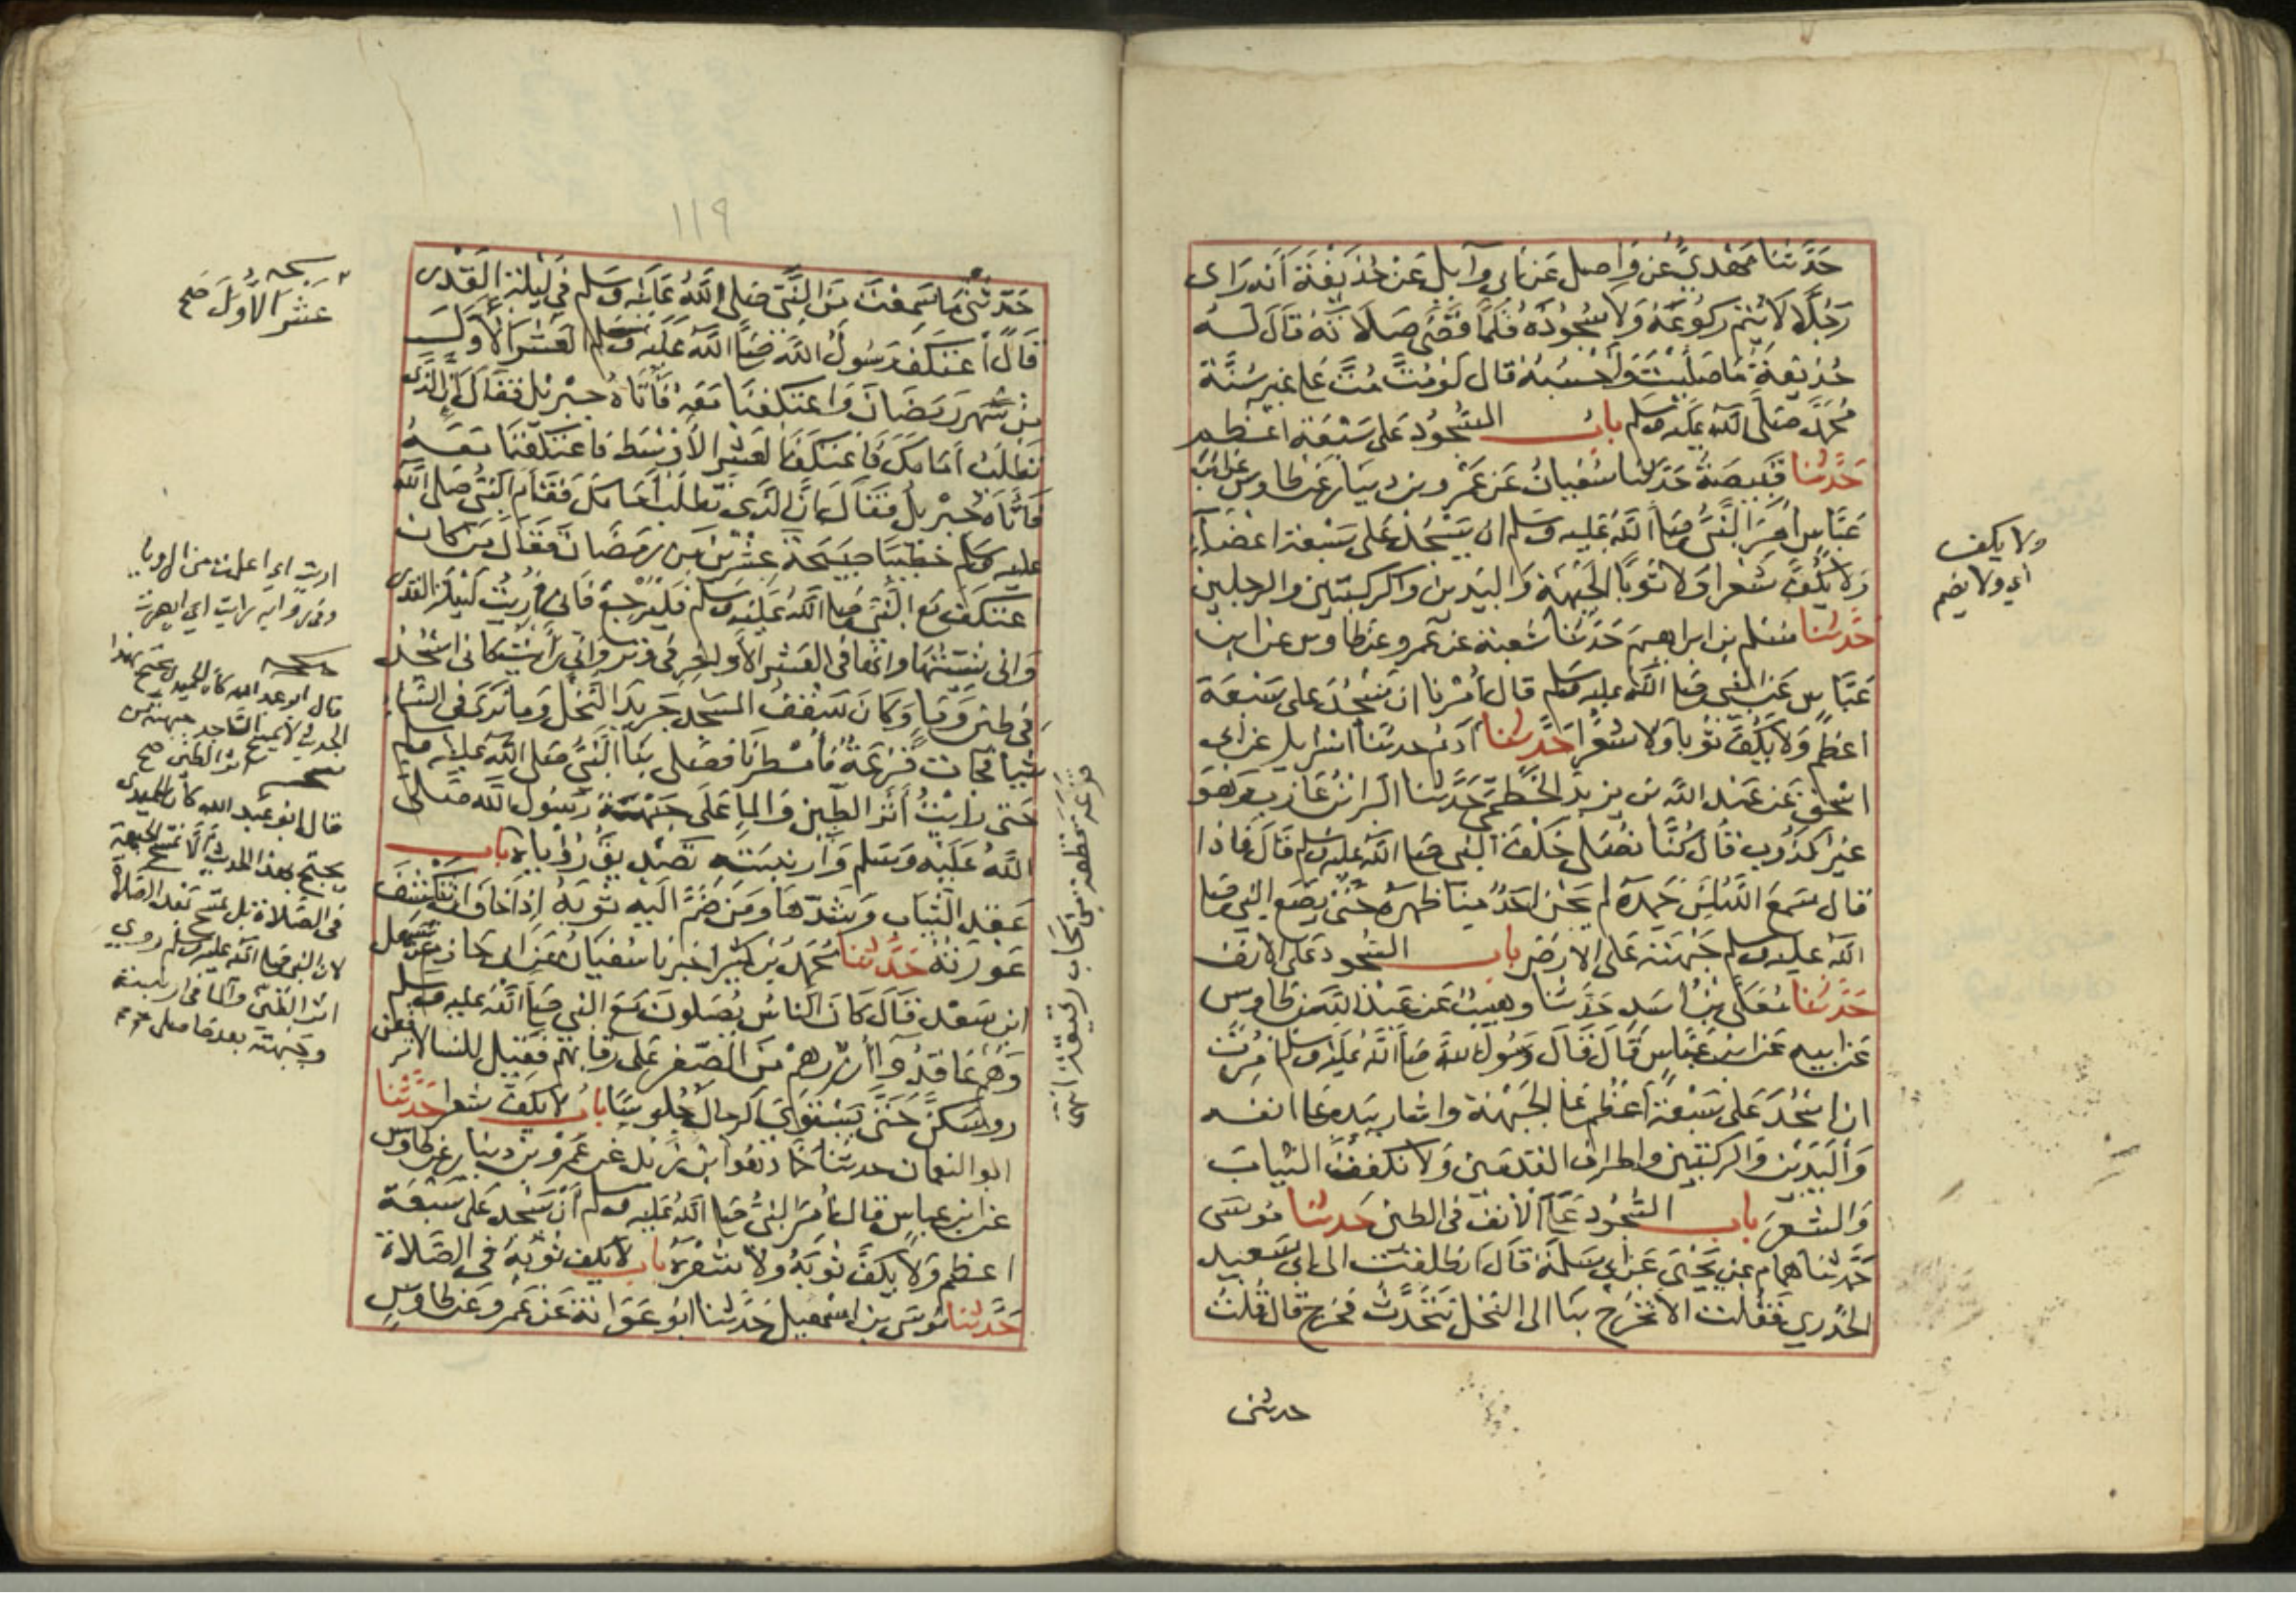 حَدَّثَنَا مَهْدِيٌّ عَن وَاصِل عَن ابى وآيل عَنْ حُذَيْفَة أنه رَاى
رَجُلًا لَا يُتِمّ ركُوعَهُ وَلَا سُجُودَهُ فَلَمَّا قَضَى صَلَاتَهُ قَالَ لَهُ
حُذَيفَةُ مَا صَلَّيْتَ وَأَحْسِبُهُ قال لَوْ مُتَّ مُتَّ عَلى غير سُنَّة
مُحَمَّد صَلَّى اللَّه عليه وسلم باب السُّجُودِ عَلى سَبْعَة اعظم
حَدَّثنا قَبِيصَةُ حَدثنا سُفيانُ عَن عَمْرو بن دينار عن طاوس عن ابن
عَبَّاس اُمِرَ النَّبىُّ صلى اللَّهُ عليه وسلم ان يَسْجُدَ عَلى سَبْعة اعضَآءٍ
وَلا يَكُفَّ شَعْرا وَلا ثوبًا الجَبْهَة وَاليَدين والركبتين والرجلين
حَدَّثنا مُسْلم بن ابراهيم حَدَّثنا شعبة عن عَمرو عن طاوس عن ابن
عَبَّاس عَن النَّبى صلى اللَّه عليه وسلم قال اُمْرنا ان نَسْجُدَ على سَبْعَة
اعظم وَلا نَكُفَّ ثوبا ولا شعرًا حَدَّثنا آدَم حدثنا اسرايل عن ابى
اسْحٰق عَن عَبْد اللَّه بن يزيدَ الخَطمى حَدَّثنا البَرآءُ بْنُ عَازب وَهوَ
غيْرُ كذوب قَال كُنَّا نُصَلى خَلْفَ النبى صلى اللَّه عليه وسلم قَالَ فَاذا
قال سَمعَ اللَّه لمَن حَمدَه لم يَحْن احَدٌ منا ظهرَه حَتَّى يَضَع النبى صلى
اللَّه عليه وسلم جَبْهَتَه عَلى الارْضِ باب السُّجودِ عَلى الانف
حَدَّثنا مُعَلَّى بنُ اسَدٍ حَدَّثنا وهيبٌ عَن عَبْد اللَّه بن طاوس
عَن ابيه عَن ابن عَبَّاس قَالَ قَالَ رَسُول اللَّه صلى اللَّهُ عَليْه وسلم اُمِرْتُ
ان اسْجُدَ عَلى سَبْعَة اعْظُم عَلى الجَبْهَة واشار بيَده عَلى انفه
وَاليَدَيْن وَالركبتين واطراف القدمَين وَلا نكففَ الثيابَ
وَالشعَرَ باب السُّجُود عَلَى الانف فى الطين حَدثنا مُوسَى
حَدَّثنا هَمام عن يَحْيَى عَن ابى سَلَمَة قَالَ انطلقت الى ابى سَعيد
الخدري فَقلت الا تَخْرُجُ بنا الى النخل نَتَحَدَّثْ فخرَج قال قلت
حدثنى
ولا يكف
اي ولا يضم
١١٩
حَدّثْنى مَا سَمعْتَ من النَّبى صَلى اللَّهُ عَليه وسَلم فى ليْلة القَدْر
قَالَ اعْتَكفَ رَسُولُ اللَّه صلى اللَّهُ عَليه وسلم العَشرَ الاوَلَ
من شَهر رَمَضَانَ وَاعتكفنا مَعَهُ فَأتَاهُ جبْريل فقَال انَّ الذى
تطلُبُ امَامَكَ فَاعْتكَفَ العَشر الأوْسَط فَاعتكفنا مَعَهُ
فَأتَاهُ جبْريلُ فقَال انَّ الذى تَطلبُ امَامَكَ فَقَامَ النَّبىُّ صَلى اللَّه
عليه وسلم خَطيبًا صَبيحَة عشرين من رَمَضَانَ فَقَالَ مَن كان
اعتكفَ مَعَ النَّبى صلى اللَّهُ عَليْه وسلم فَليَرْجع فَانى اُريتُ ليْلَة القدر
وَانى نسّيتُهَا وانها فى العَشر الأوَاخر فى وِتر وَانى رَأيتُ كانى اسْجُدُ
فى طين وَمَآءٍ وَكَانَ سَقْفُ المسْجد جَريدَ النَّخْل وَمَا نَرَى فى السَّماء
شيْأً فجاءت قزَعَةٌ فَاُمْطِرْنَا فصَلى بنَا النَّبىُّ صَلى اللَّه عَليه وسلم
حَتى رَايْتُ أَثرَ الطّين وَالمَآءِ عَلَى جَبْهَة رَسُول اللَّه صَلى
اللَّهُ عَلَيْه وَسَلم وَأرنبَته تَصْديقَ رُؤْياهُ باب
عَقد الثّياب وَشَدّها وَمَن ضَمَّ اليْه ثوْبَهُ اِذَا خَافَ ان تَنْكشفَ
عَورَتهُ حَدَّثنا مُحَمَّد بْن كثير اخبَرنا سُفيَانُ عَن ابى حَازم عَن سَهل
ابن سَعْد قَالَ كَانَ النَّاسُ يُصَلونَ مَعَ النَّبى صلى اللَّهُ عَليه وسلم
وَهم عَاقدُوا أُزُرهِمْ منَ الصّغر عَلى رقابهم فقيل للنسآء لا ترفعن
رءوسكنَّ حَتَّى يَسْتَويَ الرجالُ جُلوسًا باب لا يكفُّ شعرا حَدَّثْنَا
ابو النعمان حدثنا حَمَّاد هُوَ ابنُ زيْد عَن عَمْرو بن دينار عَن طاوس
عَن ابن عباسٍ قال اُمرَ النبىُّ صلى اللَّهُ عَليه وسلم أَنْ يَسْجُد عَلى سَبْعَة
اعظم وَلا يَكُفَّ ثَوْبَهُ ولا شَعْرَهُ باب لا يكف ثَوْبَهُ فى الصَّلاة
حَدَّثنا مُوسَى بن اسْمعيل حَدَّثنا ابُو عَوَانة عَنْ عَمْرو عَن طاوسٍ
نسخه
عَشْرَ الأُوَلَ صح
اريت اى اعلمت من الرويا
وفى رواية رايت اي ابصرت
نسخه
قال ابو عبد الله كان الحميدى يحتج بهذا
الحديث لا يمسح الساجد جبهته من
اثر الطين صح
نسخه
قال ابو عبد الله كان الحميدى
يحتج بهذا الحديث ألا تمسح الجبهة
فى الصَّلاة بل تمسح بَعْد الصَّلاة
لان النبى صلى اللَّه عليه وسلم روي
اثر الطين والماء فى ارنبته
وجبهته بعد ما صلى
قزعة بخطه من سحاب رقيقة انتهى